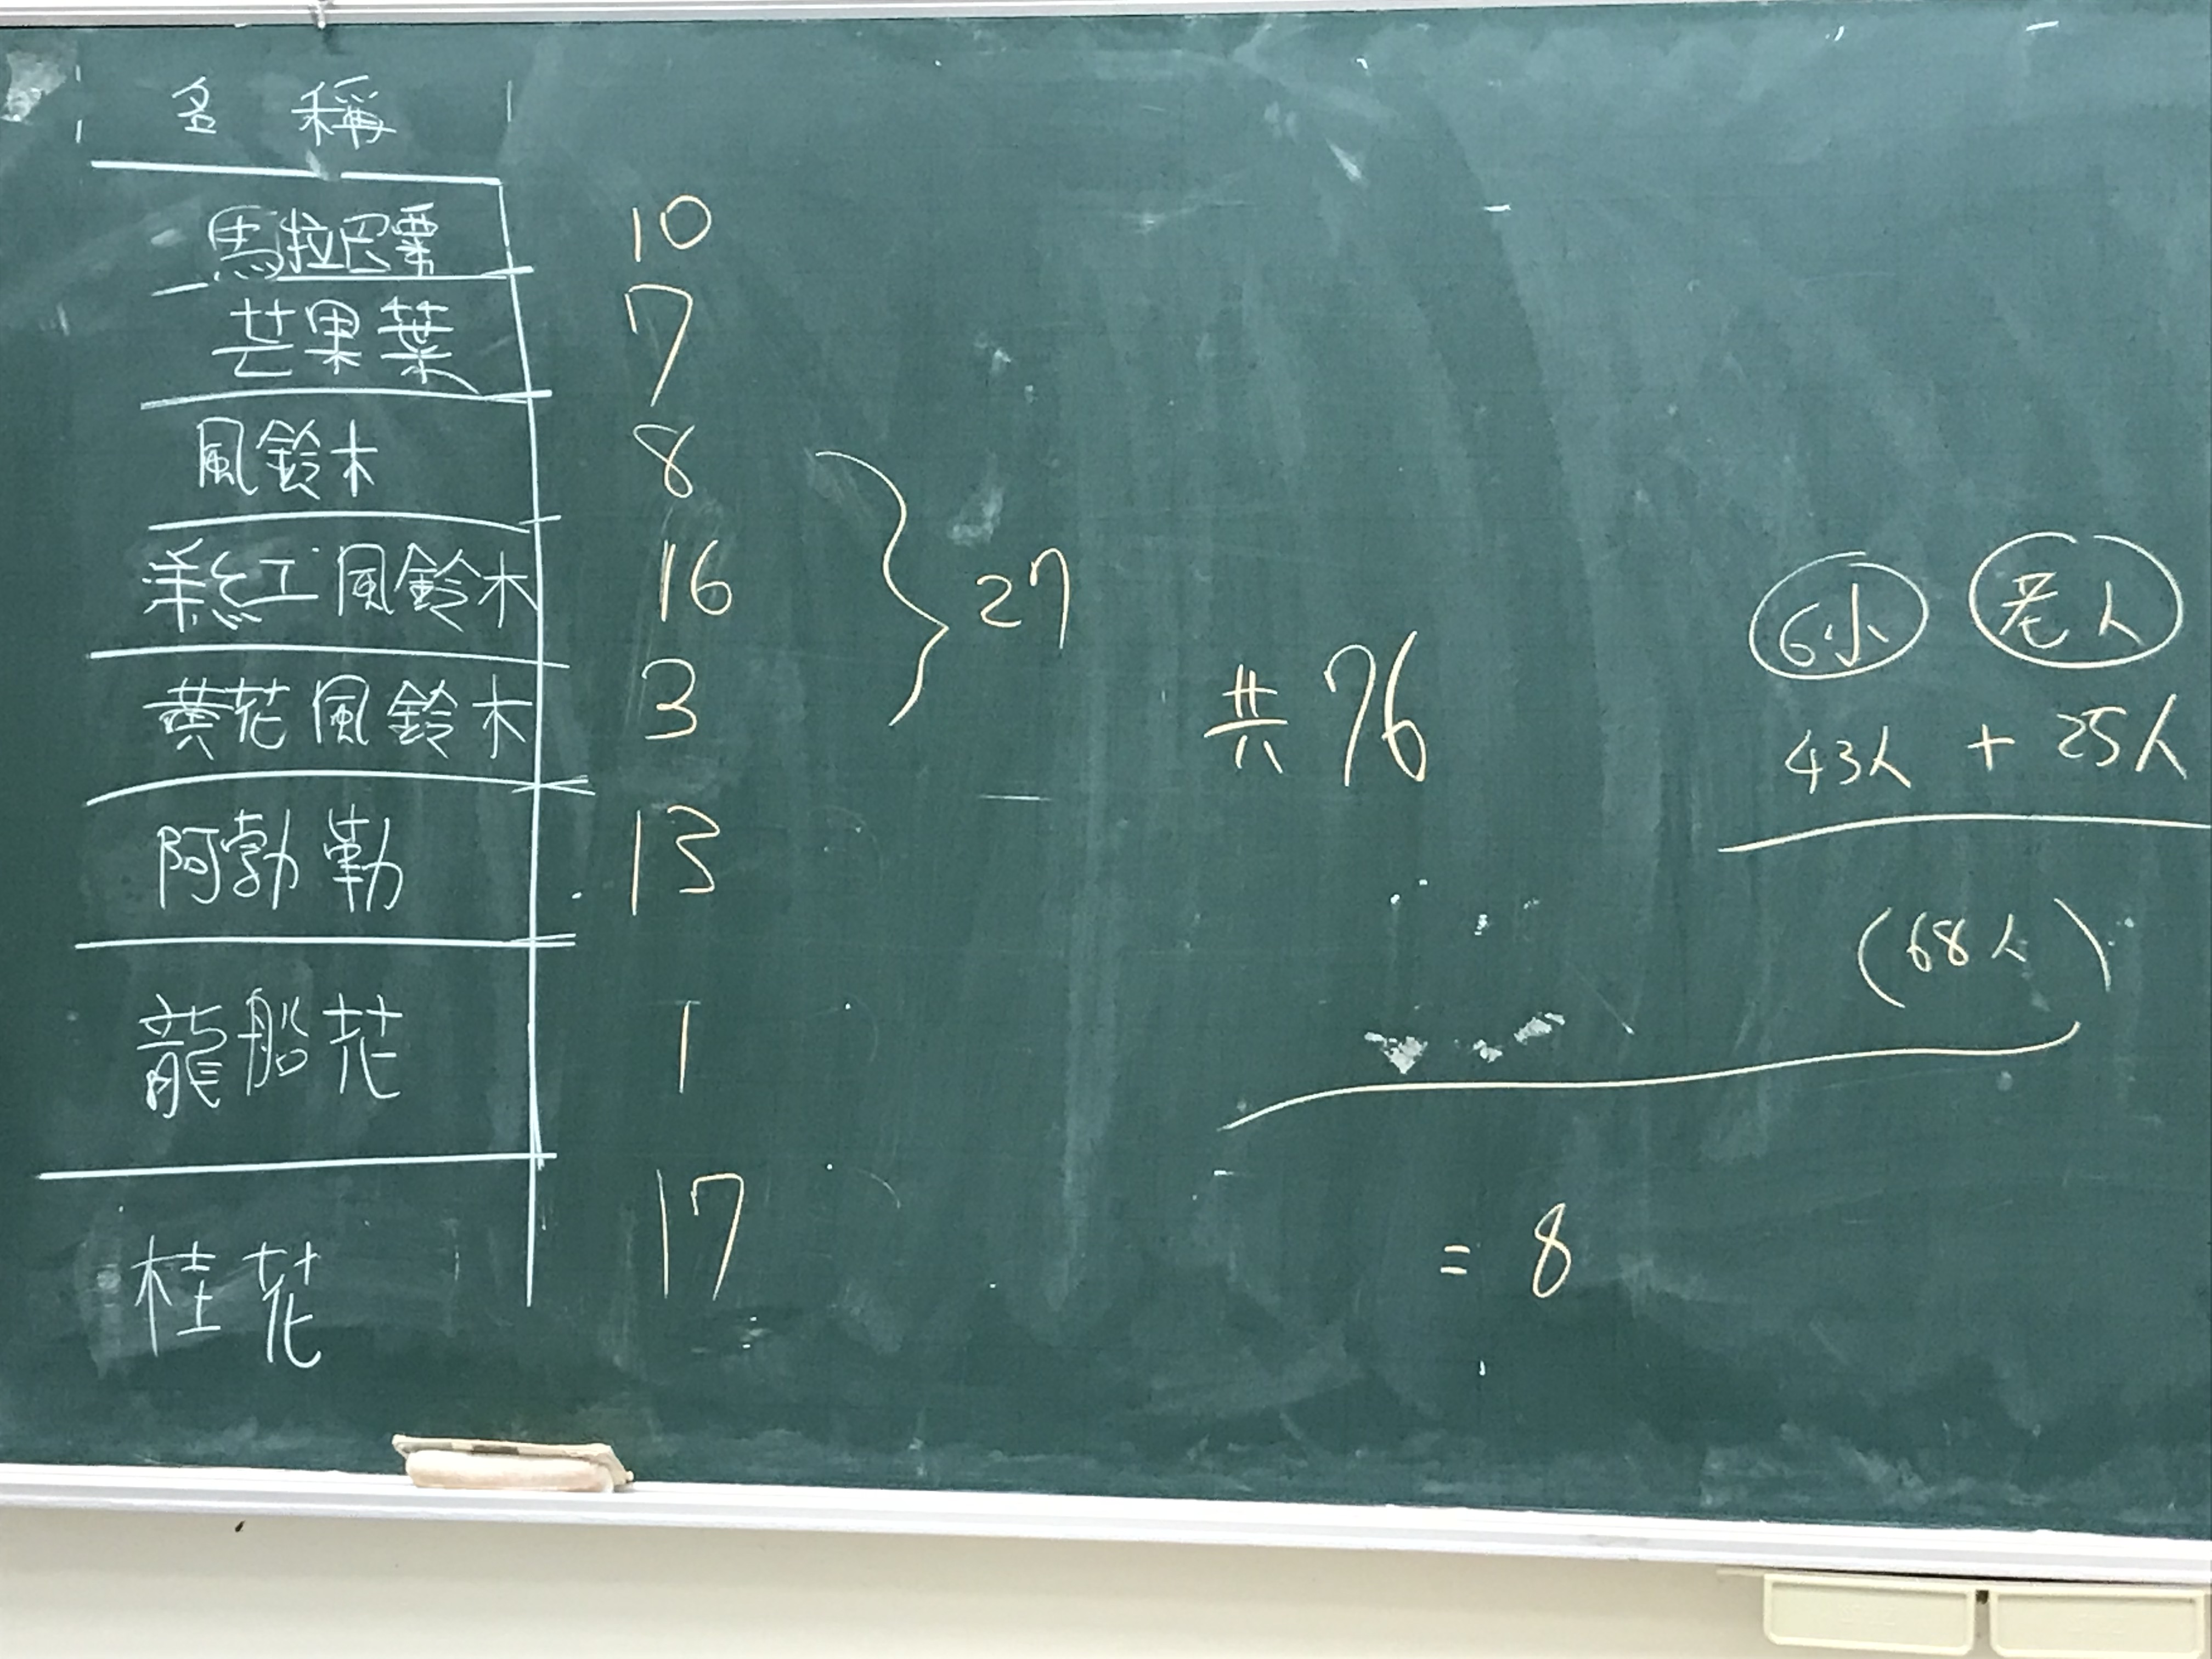 名稱
馬拉巴栗 10
芒果葉 7
風鈴木 8
洋紅風鈴木 16
黃花風鈴木 3
27
阿勃勒 13
龍船花 1
桂花 17
共76
6小 老人
43人 + 25人
(68人)
= 8